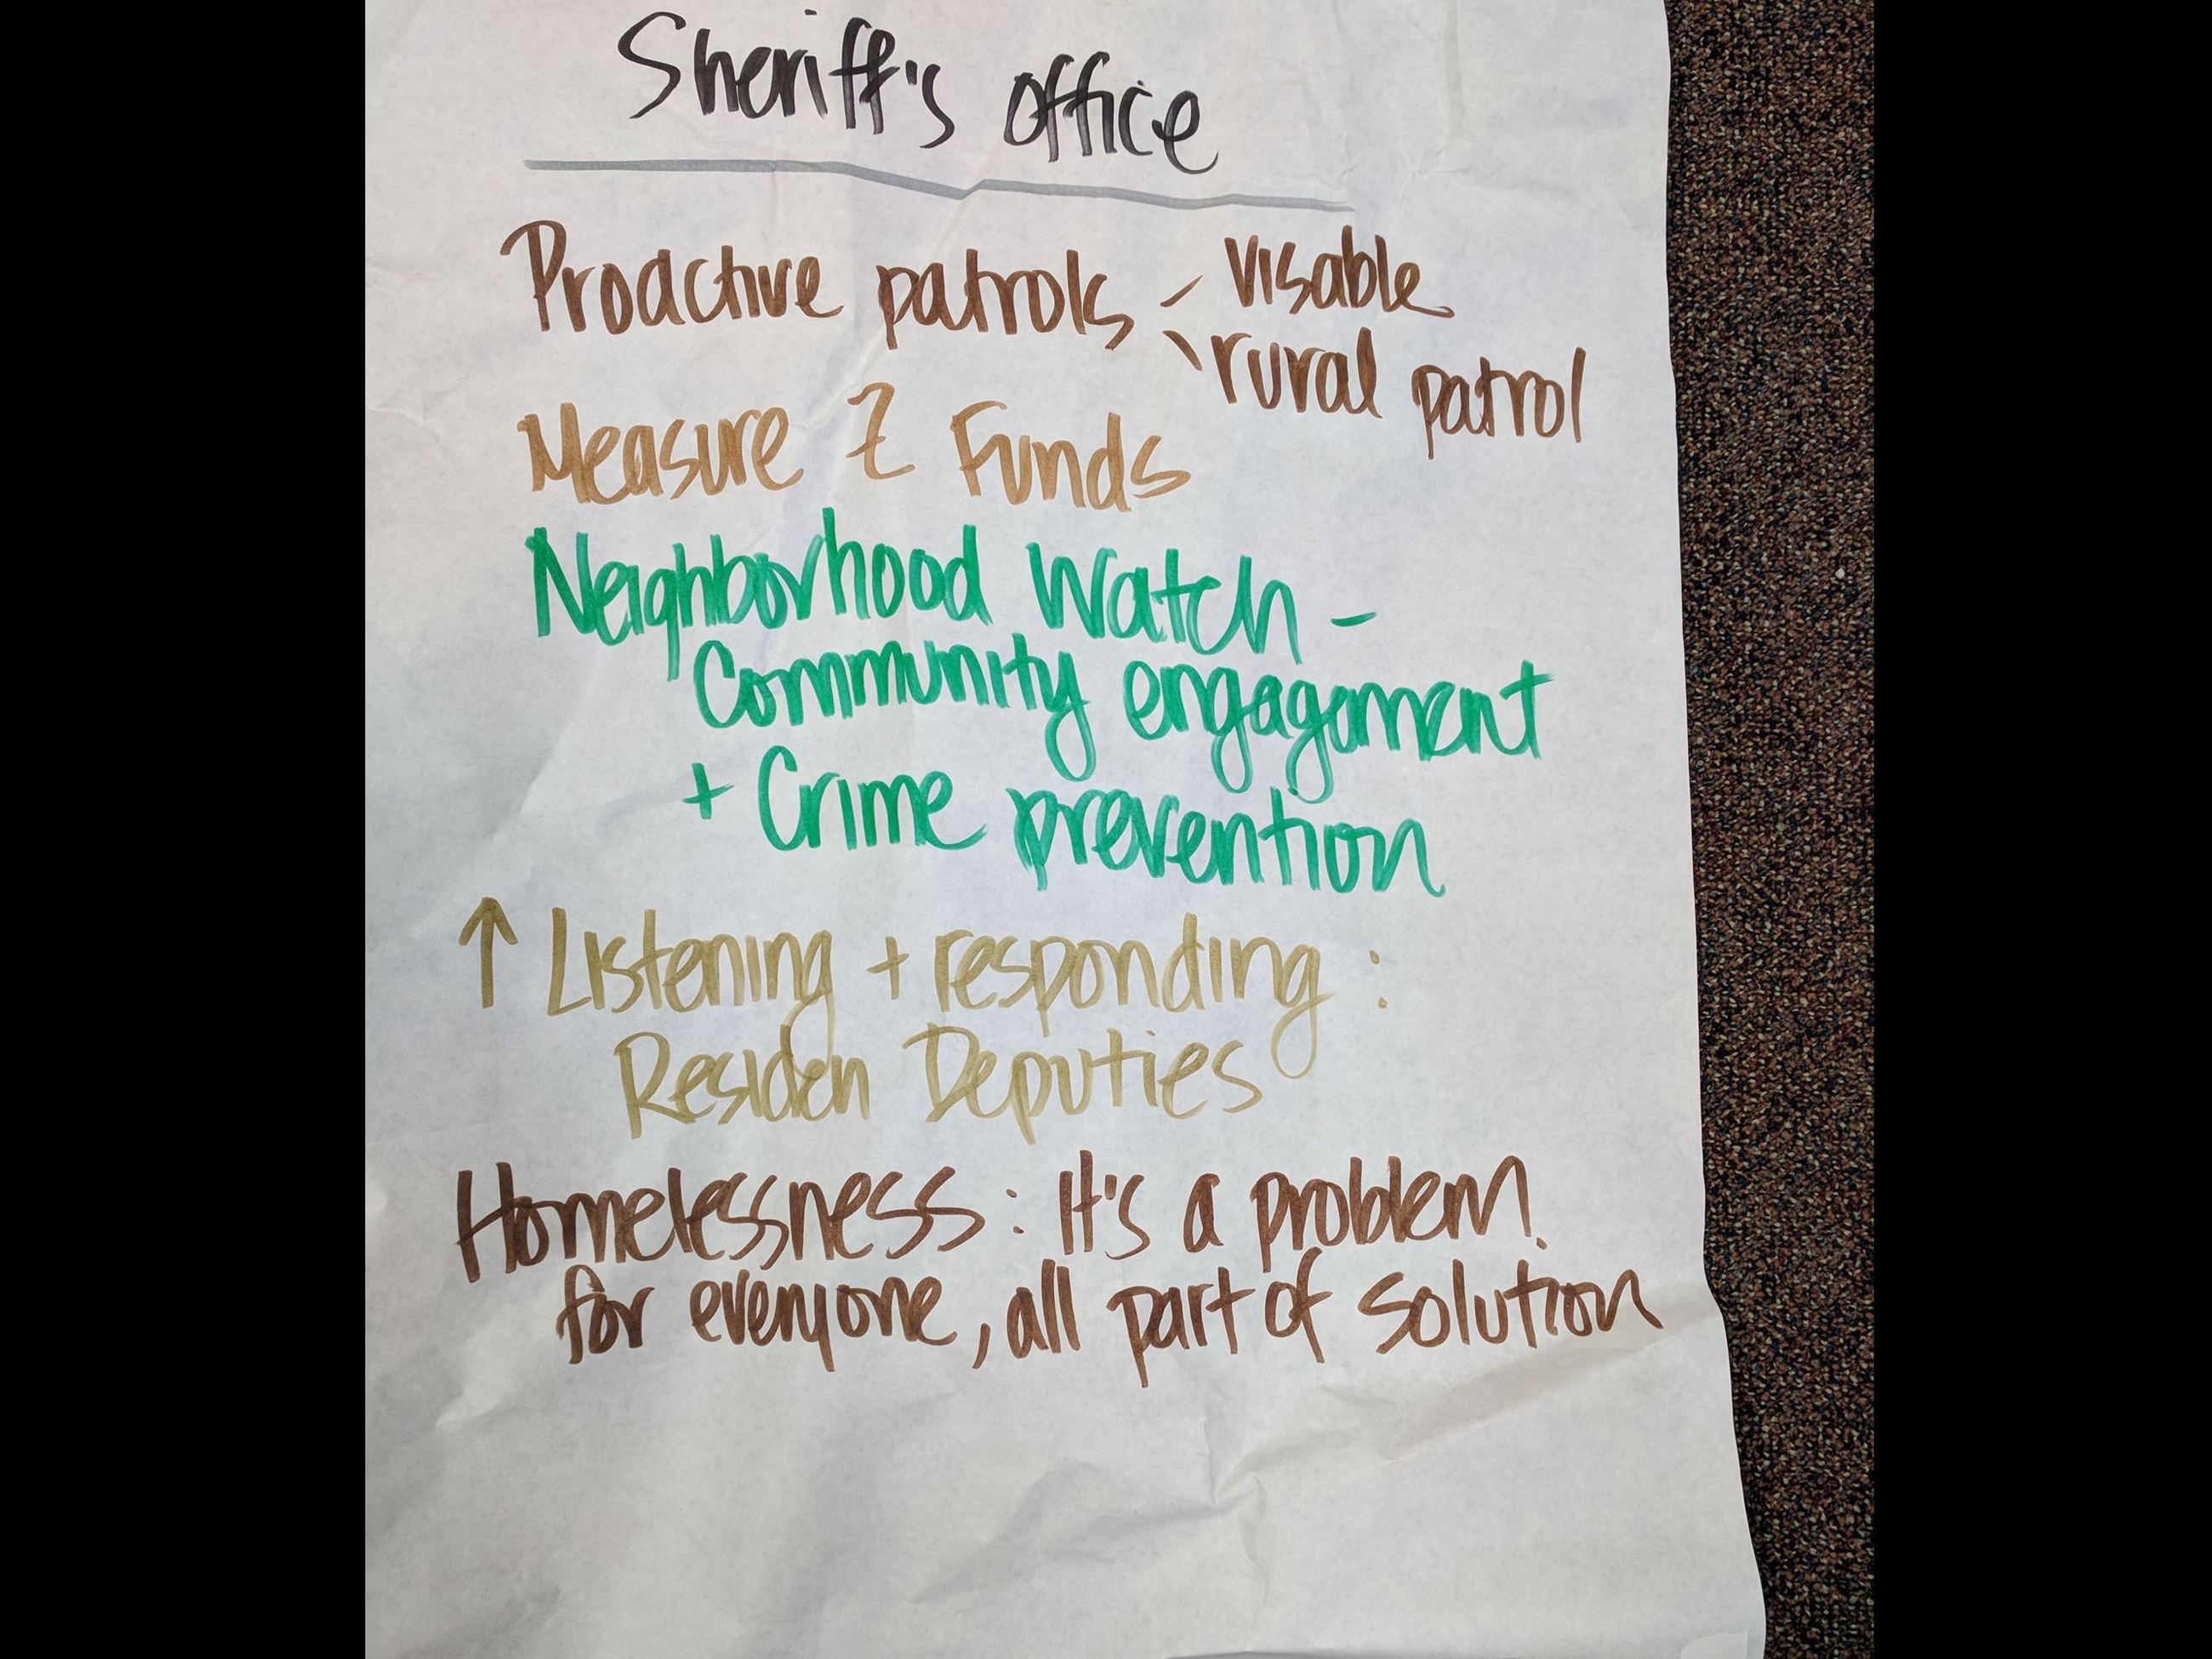 Sheriff's office
Proactive patrols - visable
- rural patrol
Measure Z Funds
Neighborhood Watch -
Community engagement
+ Crime prevention
↑ Listening + responding :
Residen Deputies
Homelessness : It's a problem.
for everyone, all part of solution